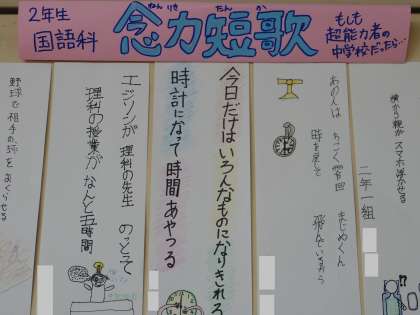 2年生
国語科
ねんりき たんか
念力短歌
もしも
超能力者の
中学校だったら…
横から親がスマホ浮かせる
二年一組
あの人は ちこく常習 まじめくん
時を戻して 飛んでいるそう
今日だけは いろんなものに なりきれる
時計になって 時間あやつる
エジソンが 理科の先生 のっとって
理科の授業が なんと五時間
野球で 相手の球を おくらせる